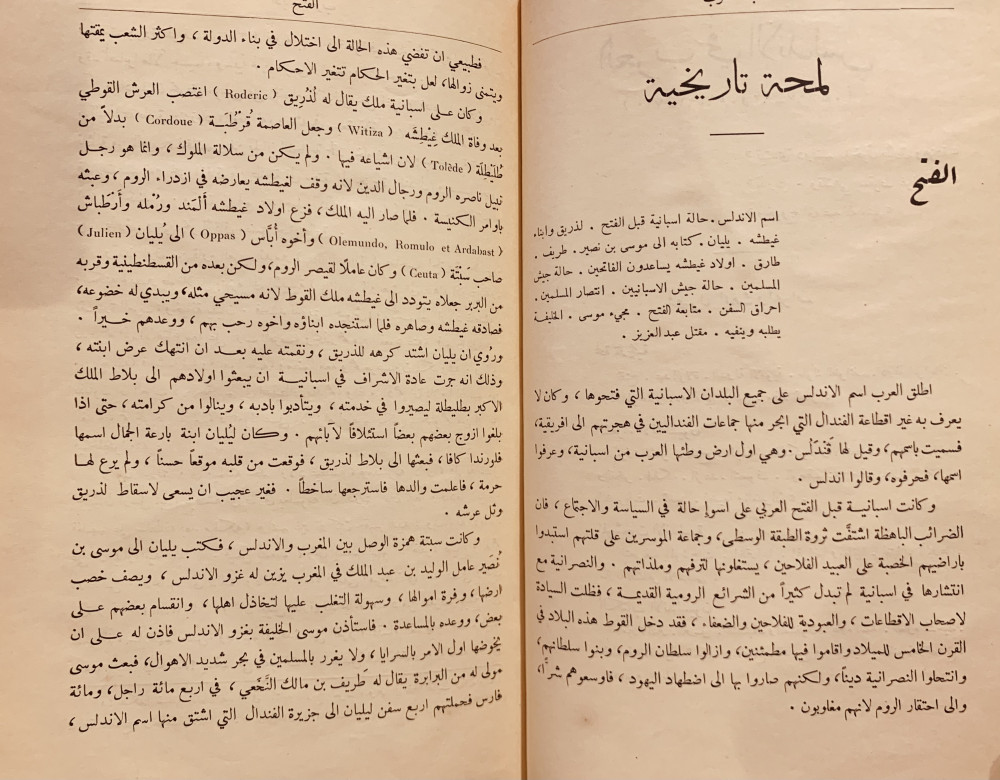 لمحة تاريخية
الفتح
اسم الاندلس . حالة اسبانية قبل الفتح . لذريق وابناء
غيطشه . يليان . كتابه الى موسى بن نصير . طريف .
طارق . اولاد غيطشه يساعدون الفاتحين . حالة جيش
المسلمين . حالة جيش الاسبانيين . انتصار المسلمين .
احراق السفن . متابعة الفتح . مجيء موسى . الخليفة
يطلبه وينفيه . مقتل عبد العزيز .
اطلق العرب اسم الاندلس على جميع البلدان الاسبانية التي فتحوها ، وكان لا
يعرف به غير اقطاعة الفندال التي ابحر منها جماعات الفنداليين في هجرتهم الى افريقية،
فسميت باسمهم، وقيل لها فَندَلُس. وهي اول ارض وطئها العرب من اسبانية، وعرفوا
اسمها، فحرفوه، وقالوا اندلس .
وكانت اسبانيـة قبل الفتح العربي على اسوإ حالة في السياسة والاجتماع ، فان
الضرائب الباهظة اشتفَّت ثروة الطبقة الوسطى، وجماعة الموسرين على قلتهم استبدوا
باراضيهم الخصبة على العبيد الفلاحين ، يستغلونها لترفهم وملذاتهم . والنصرانية مع
انتشارها في اسبانية لم تبدل كثيراً من الشرائع الرومية القديمـة ، فظلت السيادة
لاصحاب الاقطاعات ، والعبودية للفلاحين والضعفاء . فقد دخل القوط هذه البلاد في
القرن الخامس للميلاد واقاموا فيها مطمئنين، وازالوا سلطان الروم، وبنوا سلطانهم،
وانتحلوا النصرانية ديناً، ولكنهم صاروا بها الى اضطهاد اليهود ، فاوسعوهم شراً،
والى احتقار الروم لانهم مغلوبون .
الفتح
فطبيعي ان تفضي هذه الحالة الى اختلال في بناء الدولة ، واكثر الشعب يمقتها
ويتمنى زوالها، لعل بتغير الحكام تتغير الاحكام .
وكان على اسبانية ملك يقال له لُذَرِيق ( Roderic ) اغتصب العرش القوطي
بعد وفاة الملك غِيْطِشَه ( Witiza ) وجعل العاصمة قُرْطُبَـة ( Cordoue ) بدلاً من
طُلَيْطِلَة ( Tolède ) لان اشياعه فيها . ولم يكن من سلالة الملوك ، وانما هو رجل
نبيل ناصره الروم ورجال الدين لانه وقف لغيطشه يعارضه في ازدراء الروم ، وعبثه
باوامر الكنيسة . فلما صار اليه الملك، فزع اولاد غيطشه أَلَمَند ورُمْله وأَرْطَباش
( Olemundo, Romulo et Ardabast ) وأخوه أُبَّاس ( Oppas ) الى يُليان ( Julien )
صاحب سَبْتَة ( Ceuta ) وكان عاملاً لقيصر الروم، ولكن بعده من القسطنطينية وقربه
من البربر جعلاه يتودد الى غيطشه ملك القوط لانه مسيحي مثله، ويبدي له خضوعه،
فصادقه غيطشه وصاهره فلما استنجده ابناؤه واخوه رحب بهم ، ووعدهم خيـراً .
ورُوي ان يليان اشتد كرهه للذريق ، ونقمته عليه بعـد ان انتهك عرض ابنته ،
وذلك انه جرت عادة الاشراف في اسبانيـة ان يبعثوا اولادهم الى بلاط الملك
الاكبر بطليطلة ليصيروا في خدمته ، ويتأدبوا بادبه ، وينالوا من كرامته ، حتى اذا
بلغوا ازوج بعضهم بعضاً استئلافاً لآبائهم . وكـان ليُليان ابنة بارعة الجمال اسمها
فلورندا كافا، فبعثها الى بلاط لذريق ، فوقعت من قلبه موقعاً حسناً ، ولم يرع لهـا
حرمة ، فاعلمت والدها فاسترجعها ساخطاً . فغير عجيب ان يسعى لاسقاط لذريق
وثل عرشه .
وكانت سبتة همزة الوصل بين المغرب والاندلس ، فـكتب يليان الى موسى بن
نُصَير عامل الوليد بن عبد الملك في المغرب يزين له غزو الاندلس ، ويصف خصب
ارضها، وفرة اموالها ، وسهولة التغلب عليها لتخاذل اهلها ، وانقسام بعضهم علـى
بعض، ووعده بالمساعدة . فاستأذن موسى الخليفة بغزو الاندلس فاذن له علـى ان
يخوضها اول الامر بالسرايا ، ولا يغرر بالمسلمين في بحر شديد الاهوال، فبعث موسى
مولى له من البرابرة يقال له طَرِيف بن مالك النَّخَعي ، في اربع مائة راجل، ومائة
فارس فحملتهم اربع سفن ليليان الى جزيرة الفندال التي اشتق منها اسم الاندلس ،